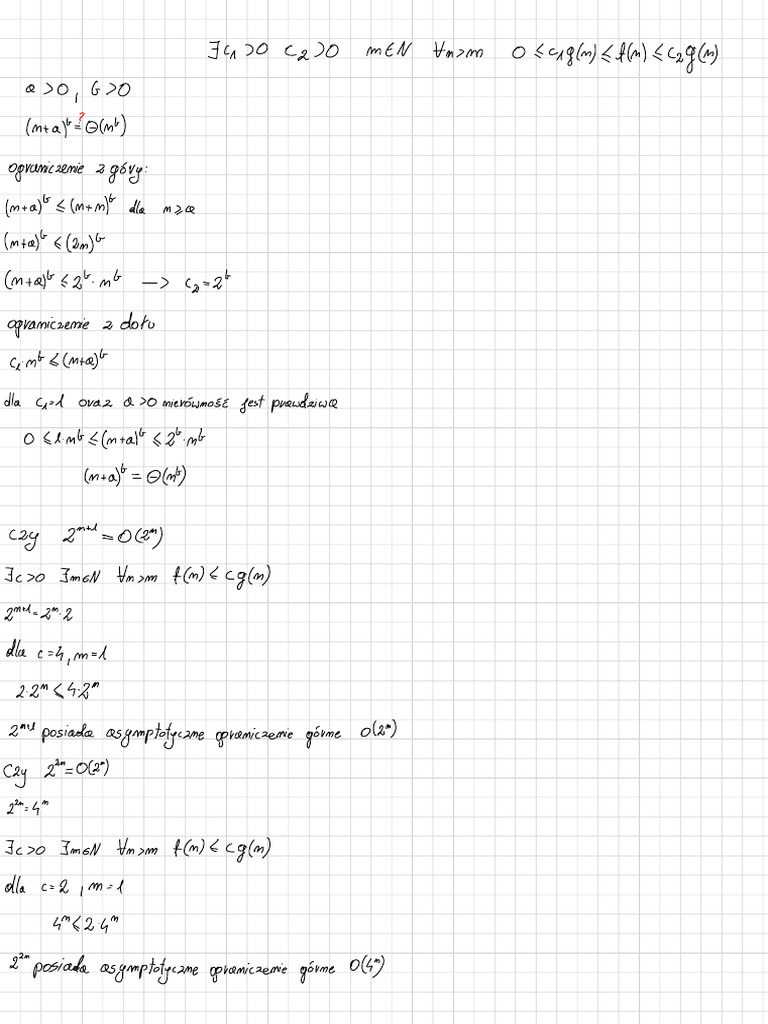 ∃c₁>0 c₂>0 m∈N ∀n>m 0≤c₁g(n)≤f(n)≤c₂g(n)
a>0, b>0
(n+a)ᵇ=?Θ(nᵇ)
ograniczenie z góry:
(n+a)ᵇ≤(n+n)ᵇ dla n≥a
(n+a)ᵇ≤(2n)ᵇ
(n+a)ᵇ≤2ᵇ·nᵇ —> c₂=2ᵇ
ograniczenie z dołu
c₁·nᵇ≤(n+a)ᵇ
dla c₁=1 oraz a>0 nierówność jest prawdziwa
0≤1·nᵇ≤(n+a)ᵇ≤2ᵇ·nᵇ
(n+a)ᵇ=Θ(nᵇ)
Czy 2ⁿ⁺¹=O(2ⁿ)
∃c>0 ∃m∈N ∀n>m f(n)≤cg(n)
2ⁿ⁺¹=2ⁿ·2
dla c=4, m=1
2·2ⁿ≤4·2ⁿ
2ⁿ⁺¹ posiada asymptotyczne ograniczenie górne O(2ⁿ)
Czy 2²ⁿ=O(2ⁿ)
2²ⁿ=4ⁿ
∃c>0 ∃m∈N ∀n>m f(n)≤cg(n)
dla c=2, m=1
4ⁿ≤2·4ⁿ
2²ⁿ posiada asymptotyczne ograniczenie górne O(4ⁿ)